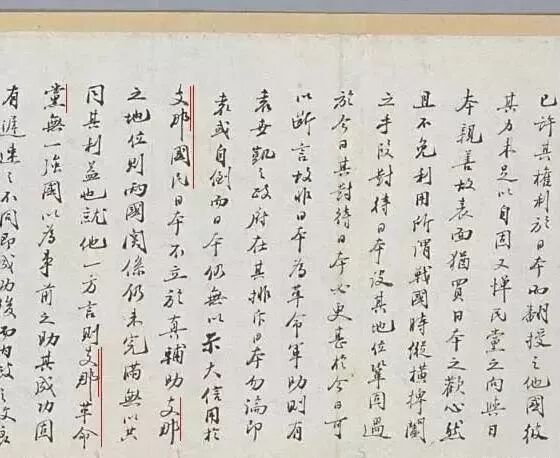 已許其權利於日本而翻授之他國彼
其力未足以自固又憚民黨之向與日
本親善故表面猶買日本之歡心然
且不免利用所謂戰國時縱橫捭闔
之手段對待日本設其地位鞏固過
於今日其對待日本必更甚於今日可
以斷言故非日本為革命軍助則有
袁世凱之政府在其排斥日本勿論即
袁或自倒而日本仍無以示大信用於
支那國民日本不立於真輔助支那
之地位則兩國關係仍未完滿無以共
同其利益也就他一方言則支那革命
黨無一強國以為事前之助其成功固
有遲速之不同即成功後而內政之